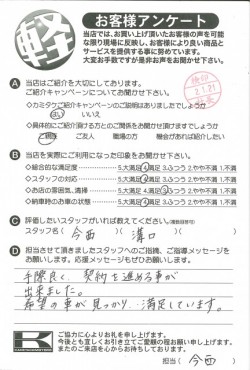 軽
お客様アンケート
当店では、お買い上げ頂いたお客様の声を可能
な限り現場に反映し、お客様により良い商品と
サービスを提供する事に努めています。
大変お手数ですが是非お声をお聞かせ下さい。
A 当店はご紹介を大切にしております。
ご紹介キャンペーンについてお聞かせ下さい。
◇カミタケご紹介キャンペーンのご説明はありましたでしょうか
はい いいえ
◇具体的にご紹介頂ける方とのご関係をお聞かせ頂けますでしょうか
ご親戚 ご友人 職場の方 機会があれば紹介したい
B 当店を実際にご利用になった印象をお聞かせ下さい。
◇総合的な満足度 5.大満足 4.満足 3.ふつう 2.やや不満 1.不満
◇スタッフの対応 5.大満足 4.満足 3.ふつう 2.やや不満 1.不満
◇お店の雰囲気、清掃 5.大満足 4.満足 3.ふつう 2.やや不満 1.不満
◇納車時のお車の状態 5.大満足 4.満足 3.ふつう 2.やや不満 1.不満
C 評価したいスタッフがいれば教えてください。(複数回答可)
スタッフ名( 今西 )( 溝口 )
D 担当させて頂きましたスタッフへのご指摘、ご指導メッセージを
お願いします。応援メッセージもぜひお願いします。
手際良く、契約を進める事が
出来ました。
希望の車が見つかり、満足しています。
ご協力に心よりお礼を申し上げます。
今後とも宜しくお引き立てご愛顧の程お願い申し上げます。
またのご来店を心からお待ちしております。
担当 ( 今西 )